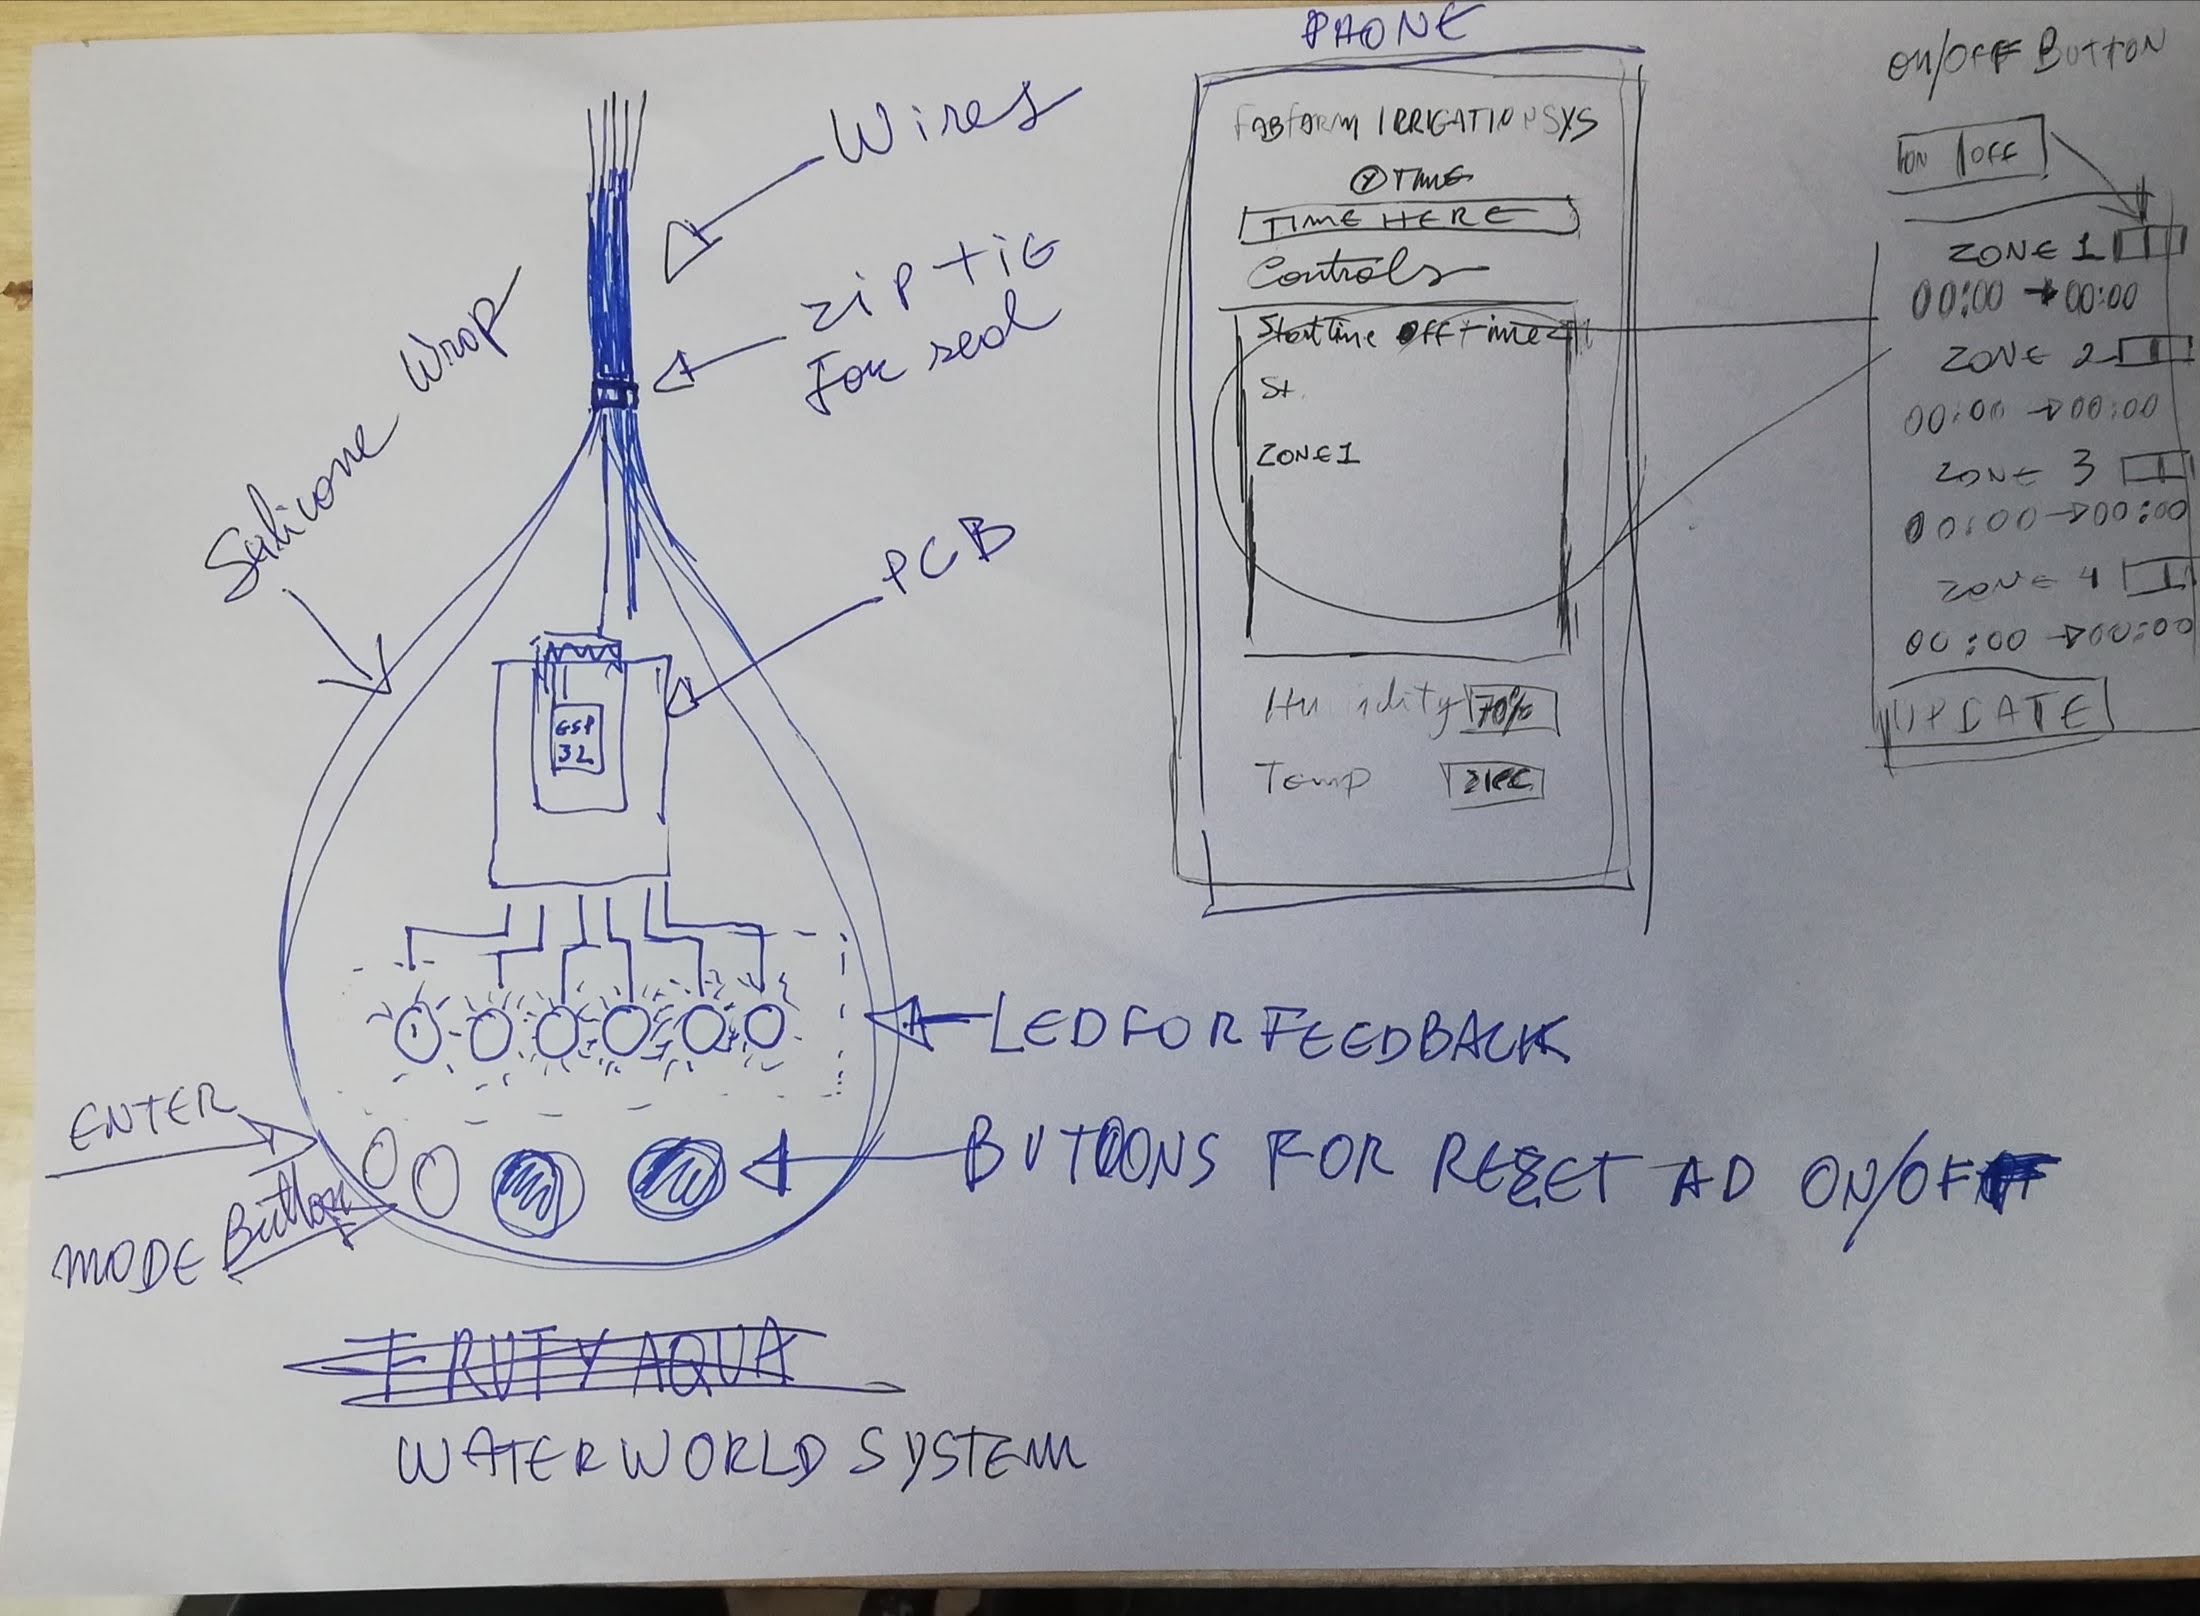 PHONE
ON/OFF BUTTON
FABFARM IRRIGATION SYS
TIME
TIME HERE
Controls
Start time OFF time
St.
ZONE 1
Humidity 70%
Temp
ON OFF
ZONE 1
00:00 → 00:00
ZONE 2
00:00 → 00:00
ZONE 3
00:00 → 00:00
ZONE 4
00:00 → 00:00
UPDATE
Wires
zip tie
For seal
Silicone Wrap
PCB
ESP
32
LED FOR FEEDBACK
ENTER
MODE Button
BUTTONS FOR RESET AD ON/OFF
FRUTY AQUA
WATERWORLD SYSTEM